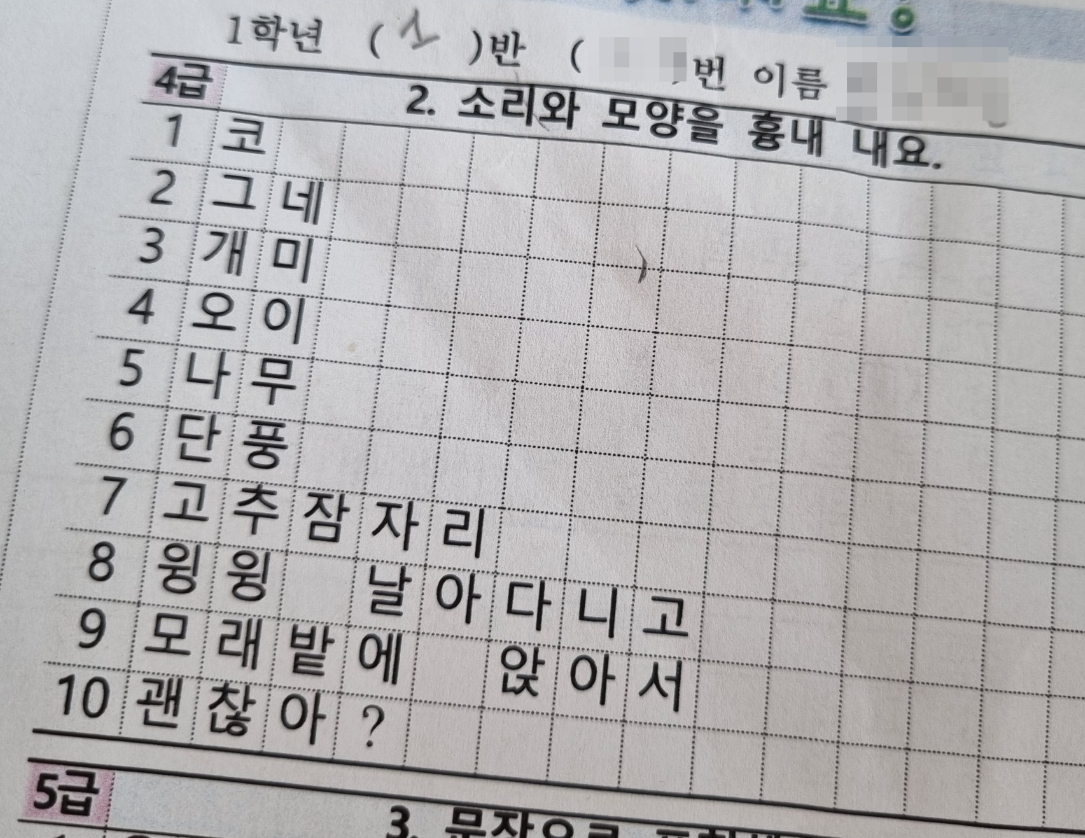 1학년 ( )반 ( 번 이름
4급 2. 소리와 모양을 흉내 내요.
1 코
2 그네
3 개미
4 오이
5 나무
6 단풍
7 고추잠자리
8 윙윙 날아다니고
9 모래밭에 앉아서
10 괜찮아?
5급 3.